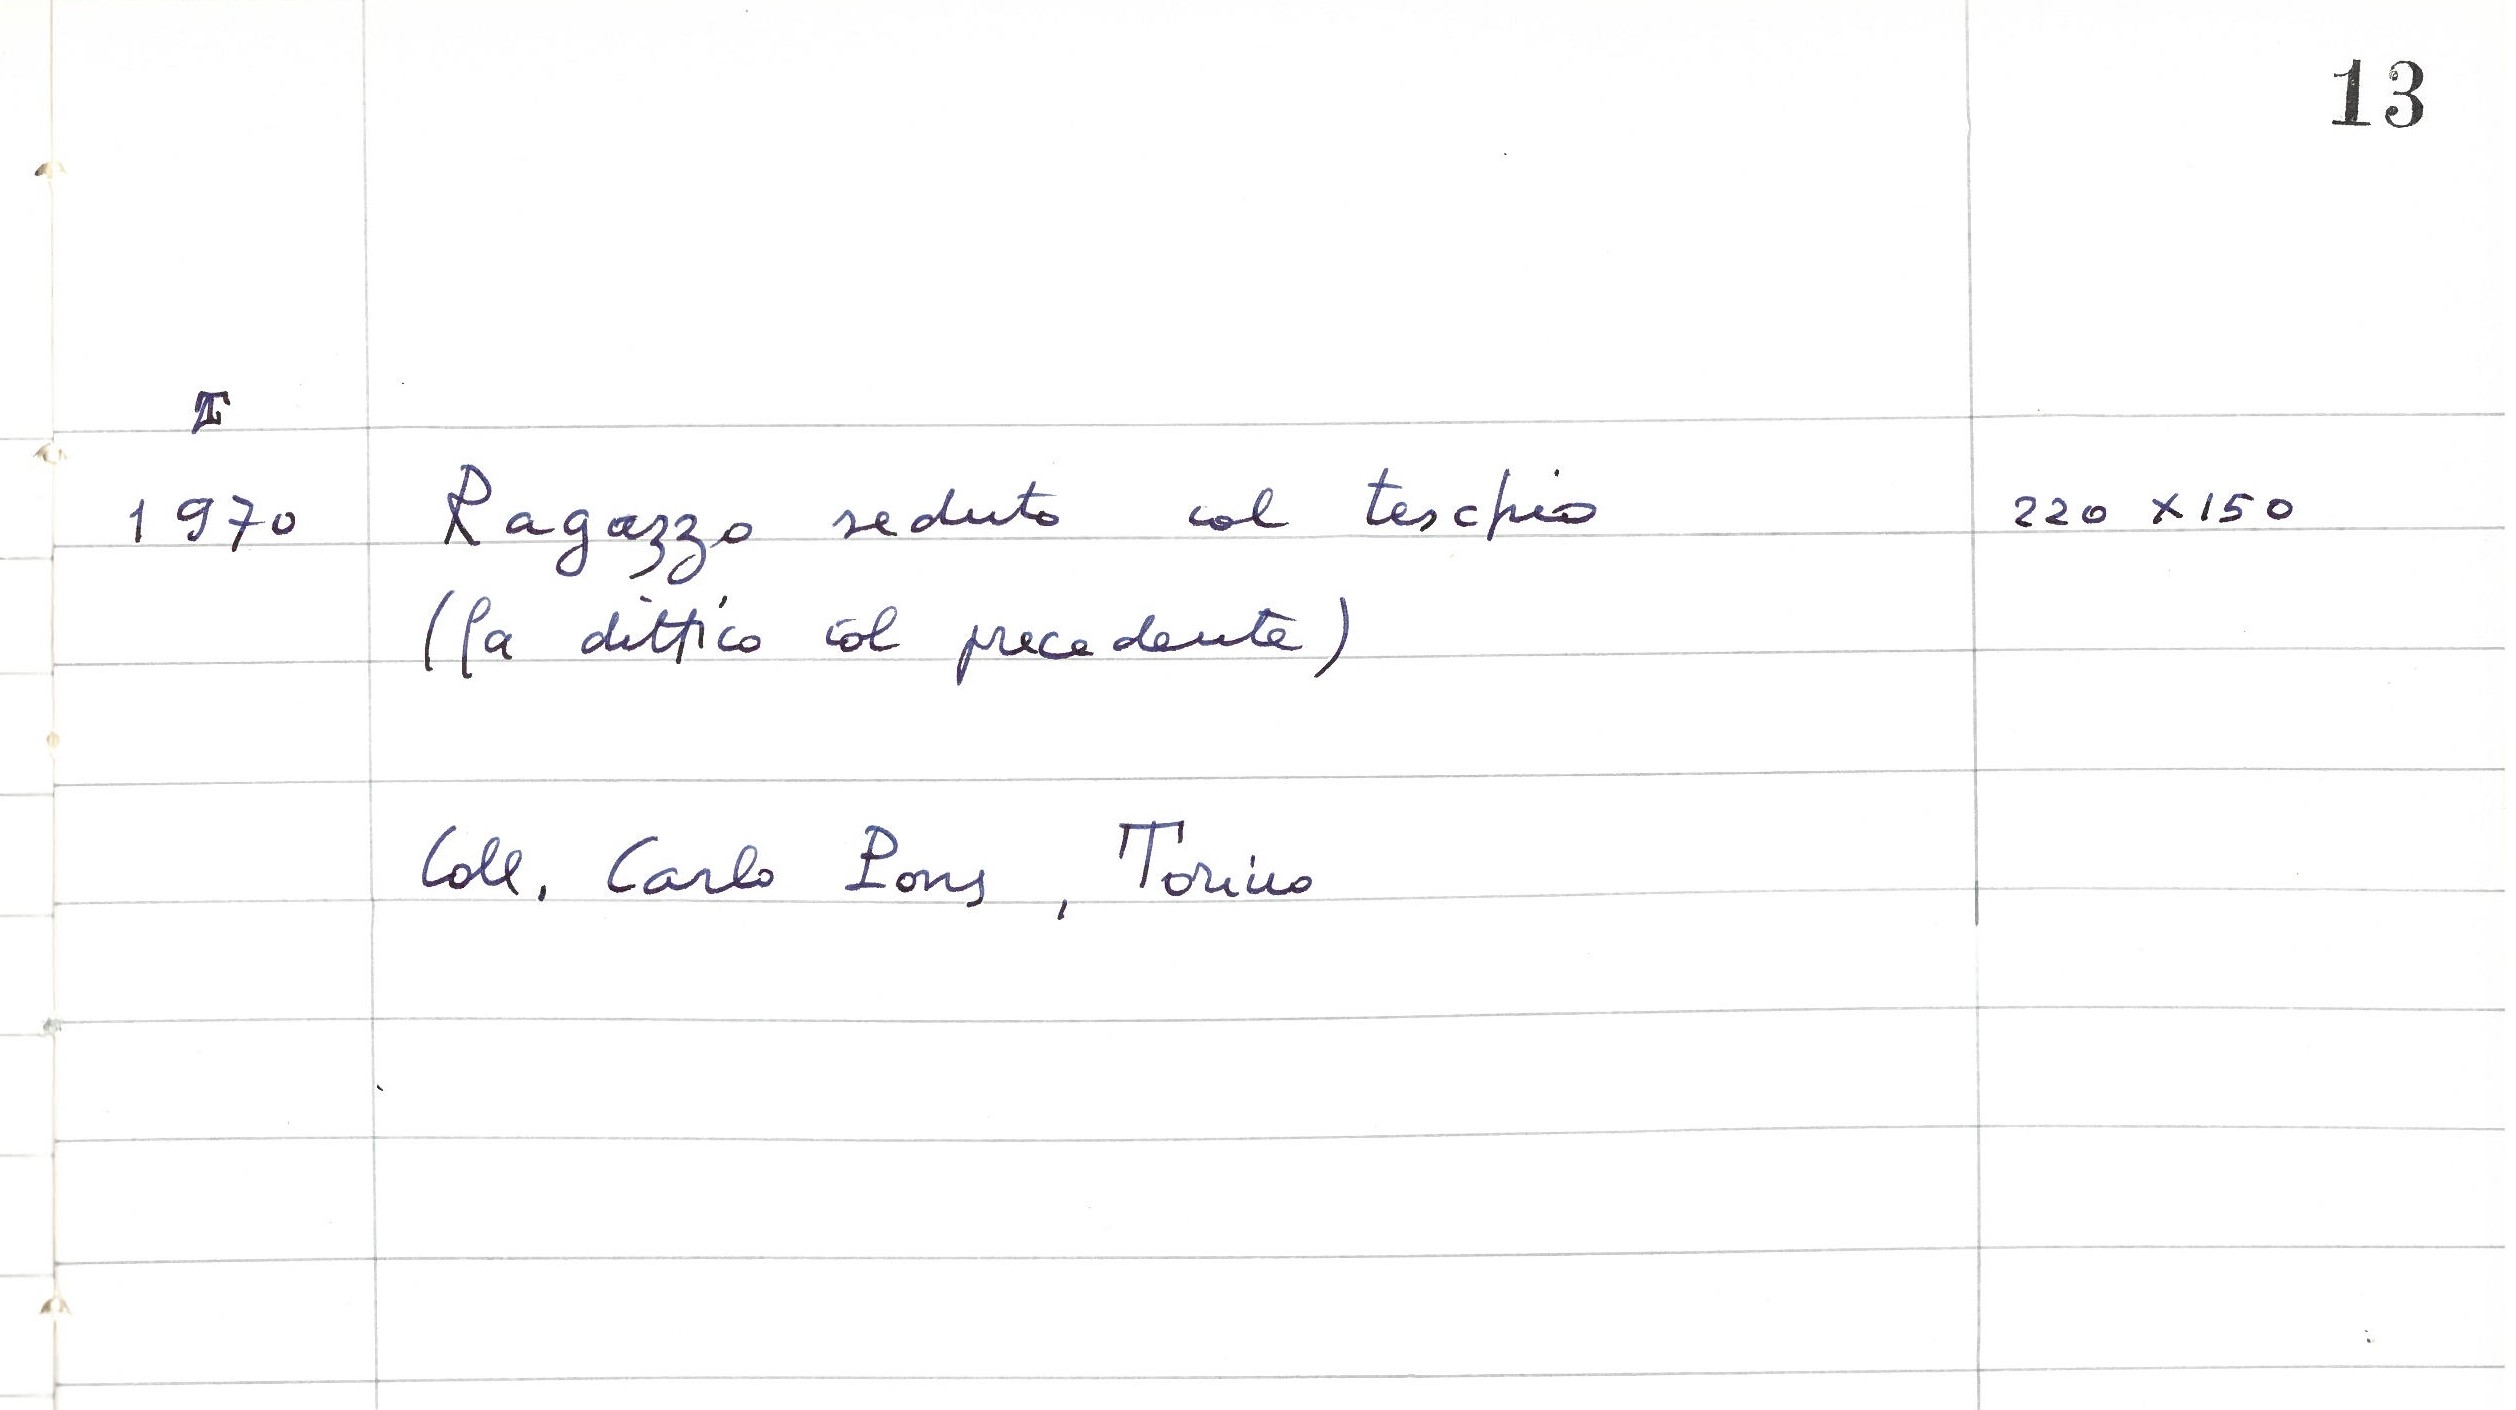 13
II
1970 Ragazzo seduto col teschio 220 x 150
(fa dittico col precedente)
Coll. Carlo Pons, Torino